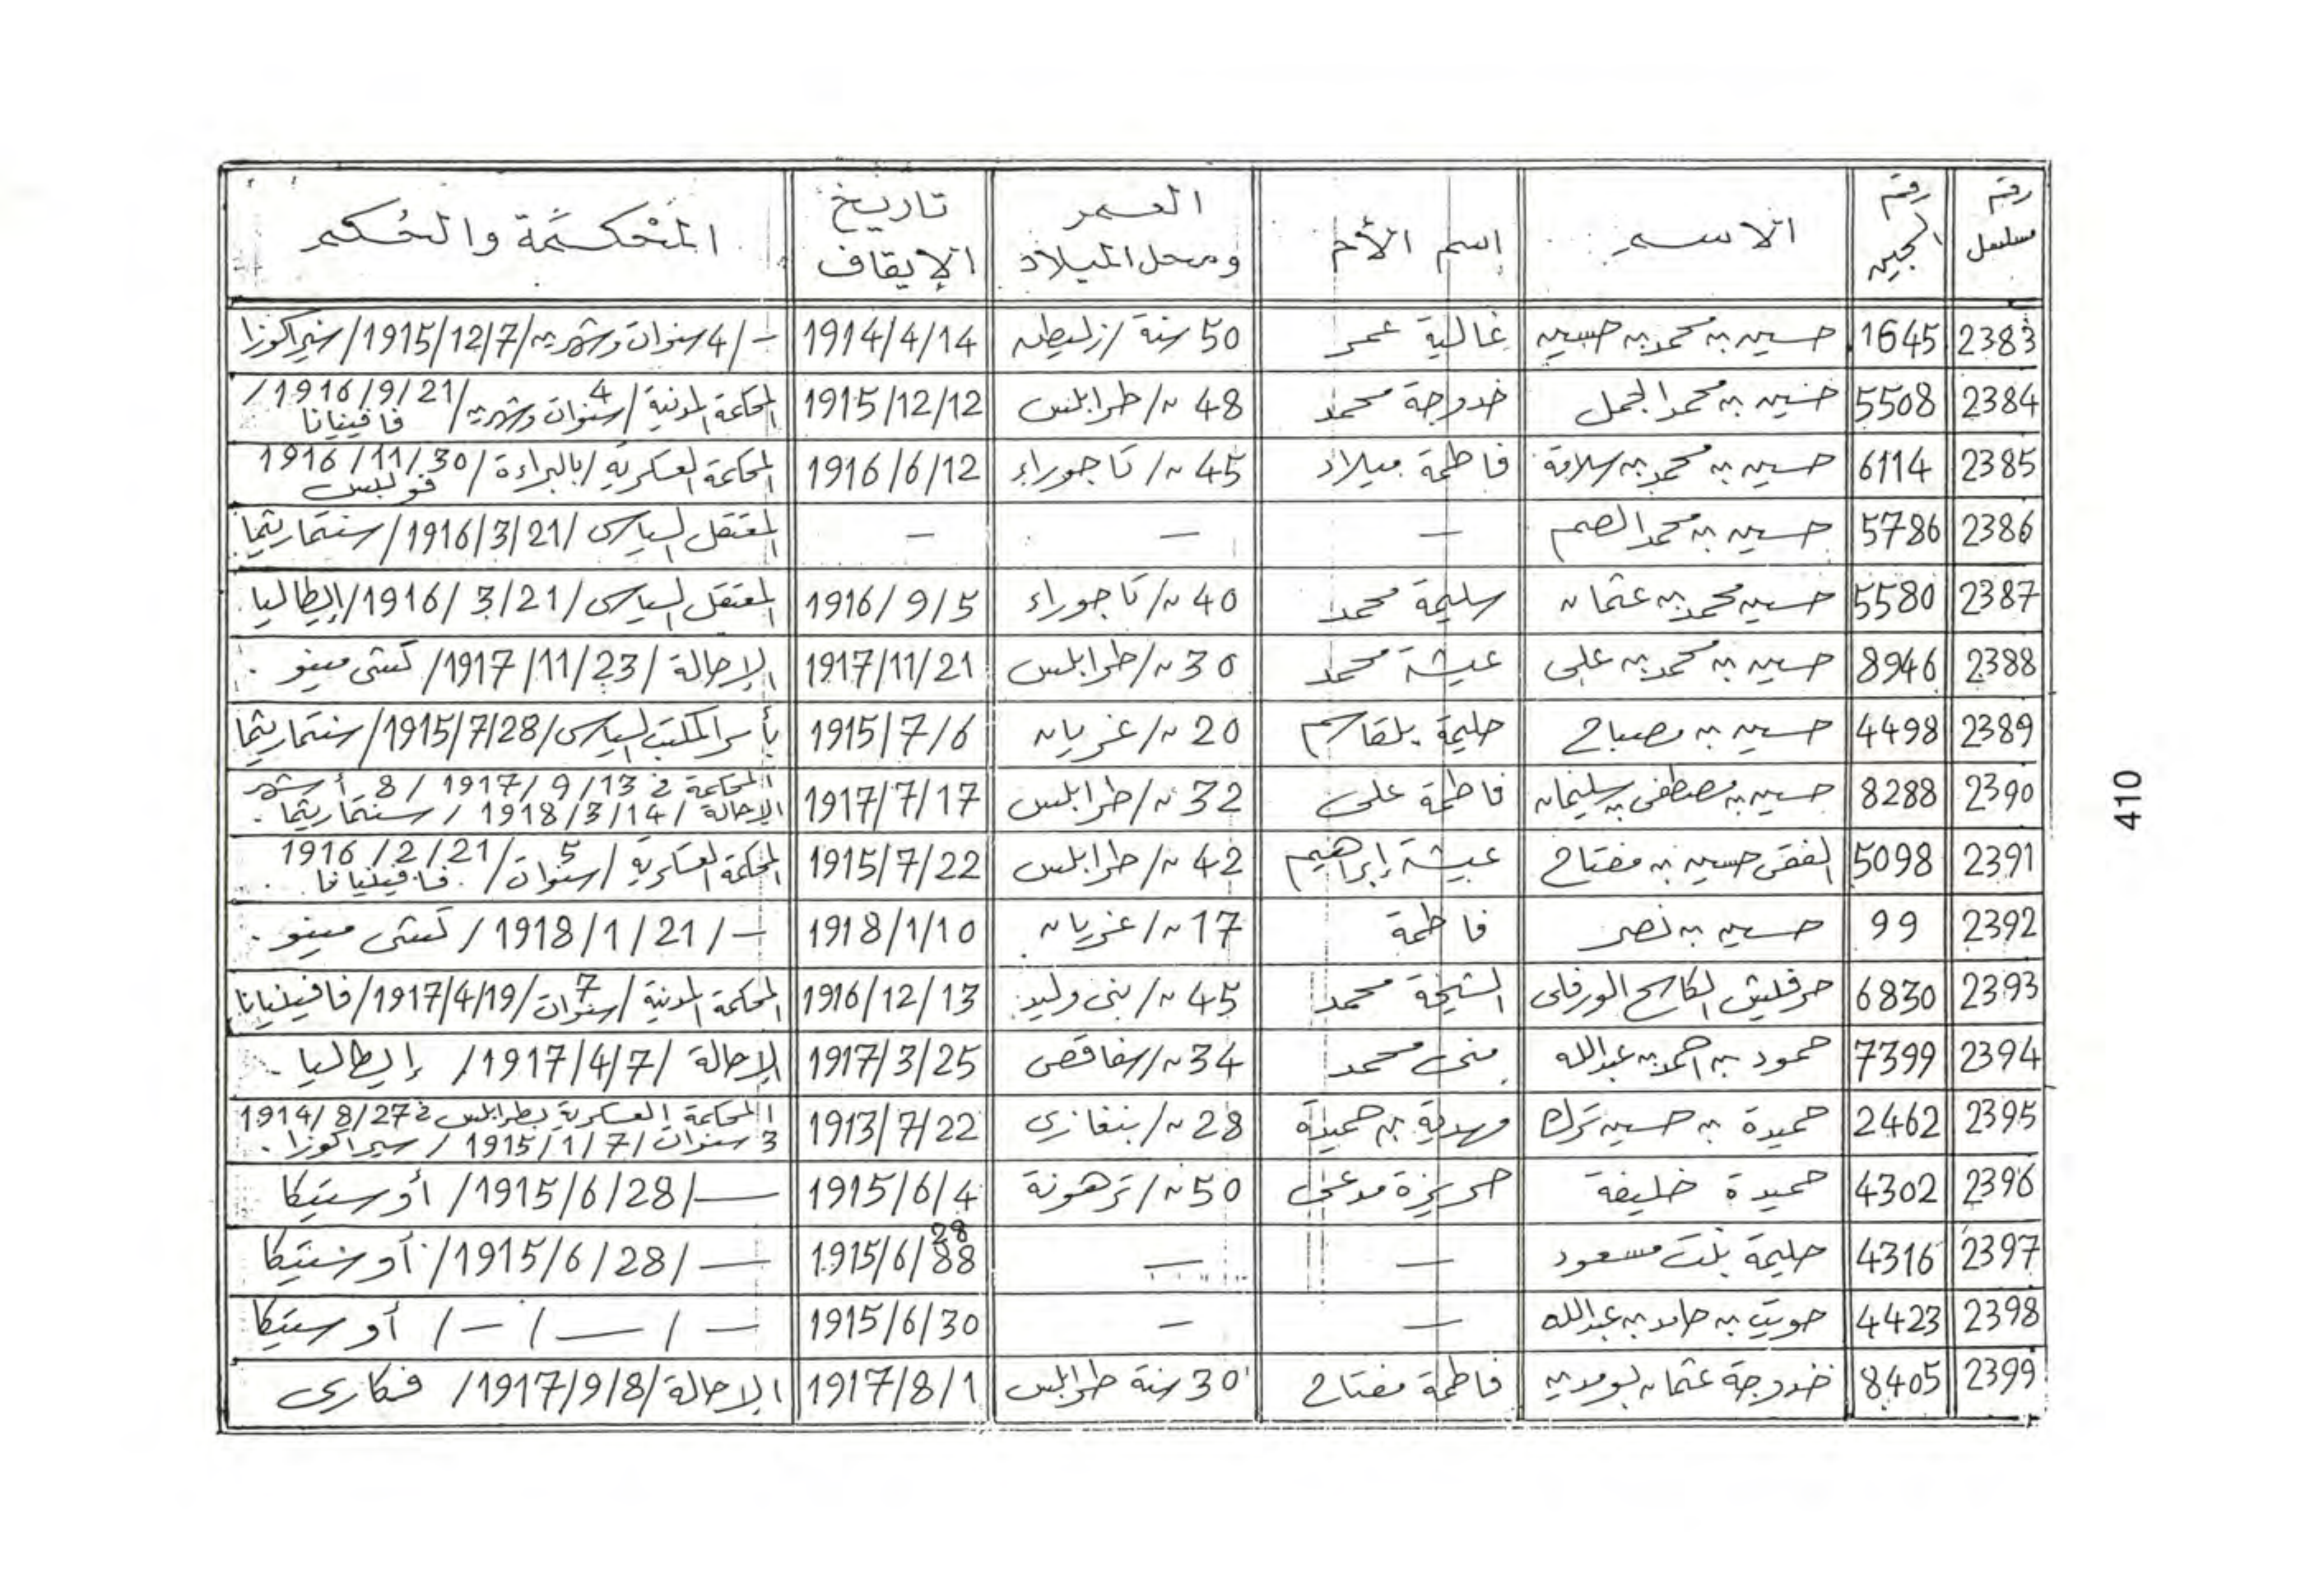 رقم مسلسل | رقم السجين | الاسم | اسم الأم | العمر ومحل الميلاد | تاريخ الإيقاف | المحكمة والحكم
2383 | 1645 | حسين بن محمد بن حسين | غالية عمر | 50 سنة / زليطن | 1914/4/14 | – / 4 سنوات وشهرين / 1915/12/7 / سيراكوزا
2384 | 5508 | حسين بن محمد الجمل | خدوجة محمد | 48 ~ / طرابلس | 1915/12/12 | المحكمة المدنية / 4 سنوات وشهرين / 1916/9/21 / فافينيانا
2385 | 6114 | حسين بن محمد بن سلامة | فاطمة ميلاد | 45 ~ / تاجوراء | 1916/6/12 | المحكمة العسكرية / بالبراءة / 1916/11/30
2386 | 5786 | حسين بن محمد الصم | – | – | – | المعتقل السياسى / 1916/3/21 / سنتماريتما
2387 | 5580 | حسين محمد بن عثمان | سليمة محمد | 40 ~ / تاجوراء | 1916/9/5 | المعتقل السياسى / 1916/3/21 / إيطاليا
2388 | 8946 | حسين بن محمد بن على | عيشة محمد | 30 ~ / طرابلس | 1917/11/21 | الإحالة / 1917/11/23 / كستى مينو
2389 | 4498 | حسين بن مصباح | حليمة بلقاسم | 20 ~ / غريان | 1915/7/6 | بأمر المكتب السياسى / 1915/7/28 / سنتماريتما
2390 | 8288 | حسين بن مصطفى بن سليمان | فاطمة على | 32 ~ / طرابلس | 1917/7/17 | المحكمة فى 1917/9/13 / 8 أشهر الإحالة / 1918/3/14 / سنتماريتما.
2391 | 5098 | الفقى حسين بن مفتاح | عيشة إبراهيم | 42 ~ / طرابلس | 1915/7/22 | المحكمة العسكرية / 5 سنوات / 1916/2/21 فافينيانا
2392 | 99 | حسين بن نصر | فاطمة | 17 ~ / غريان | 1918/1/10 | – / 1918/1/21 / كستى مينو.
2393 | 6830 | الورفلى | الشيخة محمد | 45 ~ / بنى وليد | 1916/12/13 | المحكمة المدنية / 7 سنوات / 1917/4/19 / فافينيانا
2394 | 7399 | حمود بن احمد بن عبدالله | منى محمد | 34 ~ / سفاقص | 1917/3/25 | الإحالة / 1917/4/7 / إيطاليا
2395 | 2462 | حميدة بن حسين ترك | مهدية بن حميدة | 28 ~ / بنغازى | 1913/7/22 | المحكمة العسكرية بطرابلس فى 1914/8/27 3 سنوات / 1915/1/7 / سيراكوزا.
2396 | 4302 | حميدة خليفة | | 50 ~ / ترهونة | 1915/6/4 | — / 1915/6/28 / أوستيكا
2397 | 4316 | حليمة بنت مسعود | – | – | 1915/6/88 28 | — / 1915/6/28 / أوستيكا
2398 | 4423 | بن حامد بن عبدالله | – | – | 1915/6/30 | – / — / – / أوستيكا
2399 | 8405 | خدوجة عثمان بومدين | فاطمة مفتاح | 30 سنة طرابلس | 1917/8/1 | الإحالة / 1917/9/8 / فكارى
410